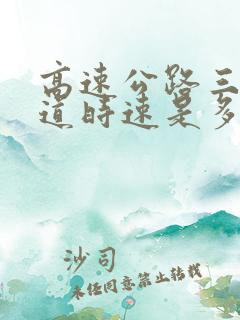 高速公路三
道时速是多
沙司
未经同意禁止转载